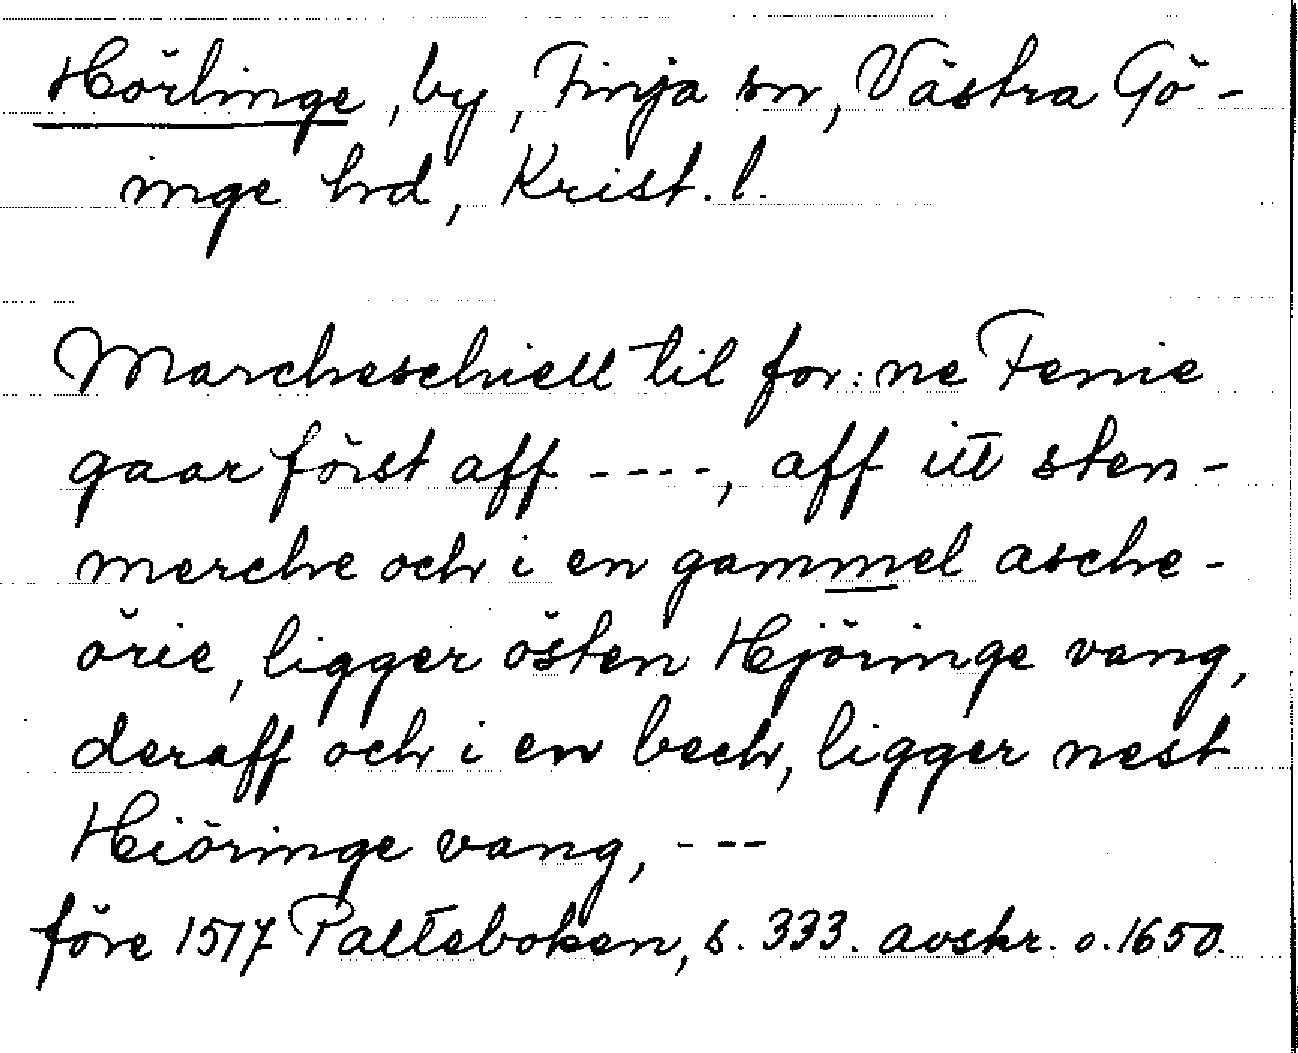 Hörlinge, by, Finja sn, Västra Gö-
inge hrd, Krist. l.
Marcheschiell til for:ne Fenie
gaar först aff ----, aff itt sten-
merche och i en gammel asche-
örie, ligger östen Hjöringe vang,
deraff och i en bech, ligger nest
Hiöringe vang, ---
före 1517 Palteboken, s. 333. avskr. o. 1650.